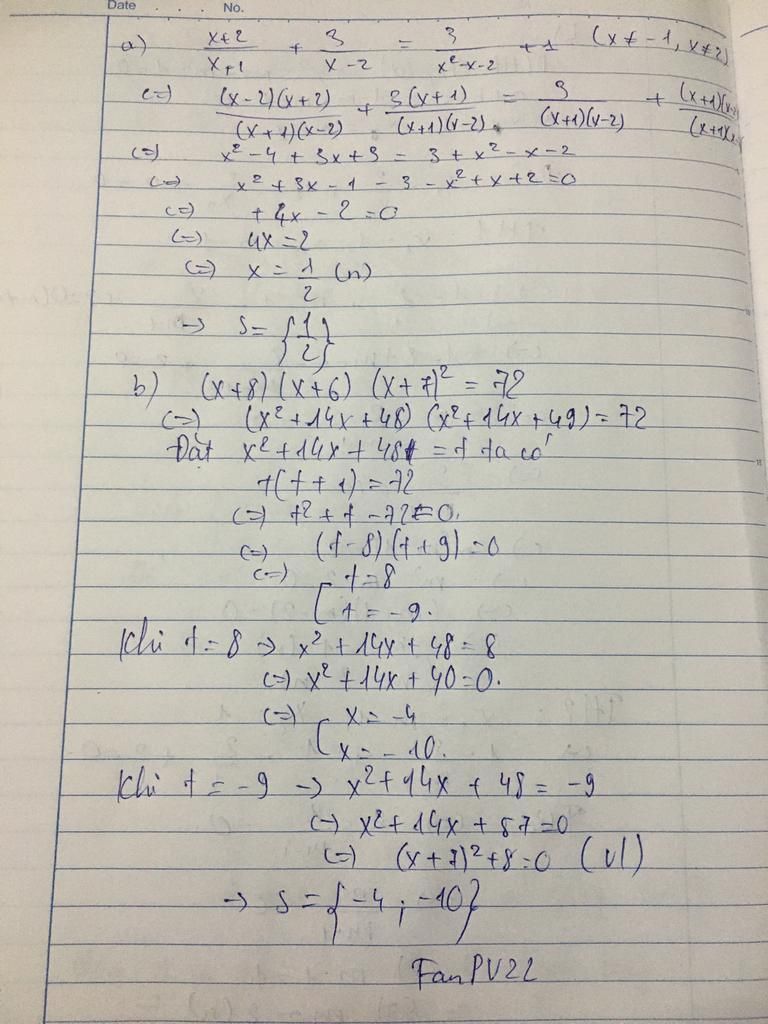 Date No.
a) x+2/x+1 + 3/x-2 = 3/x²-x-2 + 1 (x≠-1, x≠2)
(=) (x-2)(x+2)/(x+1)(x-2) + 3(x+1)/(x+1)(x-2) = 3/(x+1)(x-2) + (x+1)(x-/(x+1)(x
(=) x²-4+3x+3 = 3+x²-x-2
(=) x²+3x-1-3-x²+x+2=0
(=) +4x-2=0
(=) 4x=2
(=) x=1/2 (n)
→ S={1/2}
b) (x+8)(x+6)(x+7)²=72
(=) (x²+14x+48)(x²+14x+49)=72
Đặt x²+14x+48=t ta có
t(t+1)=72
(=) t²+t-72=0.
(=) (t-8)(t+9)=0
(=) [t=8
t=-9.
Khi t=8 → x²+14x+48=8
(=) x²+14x+40=0.
(=) [x=-4
x=-10.
Khi t=-9 → x²+14x+48=-9
(=) x²+14x+57=0
(=) (x+7)²+8=0 (vl)
→ S={-4; -10}
FanPV22